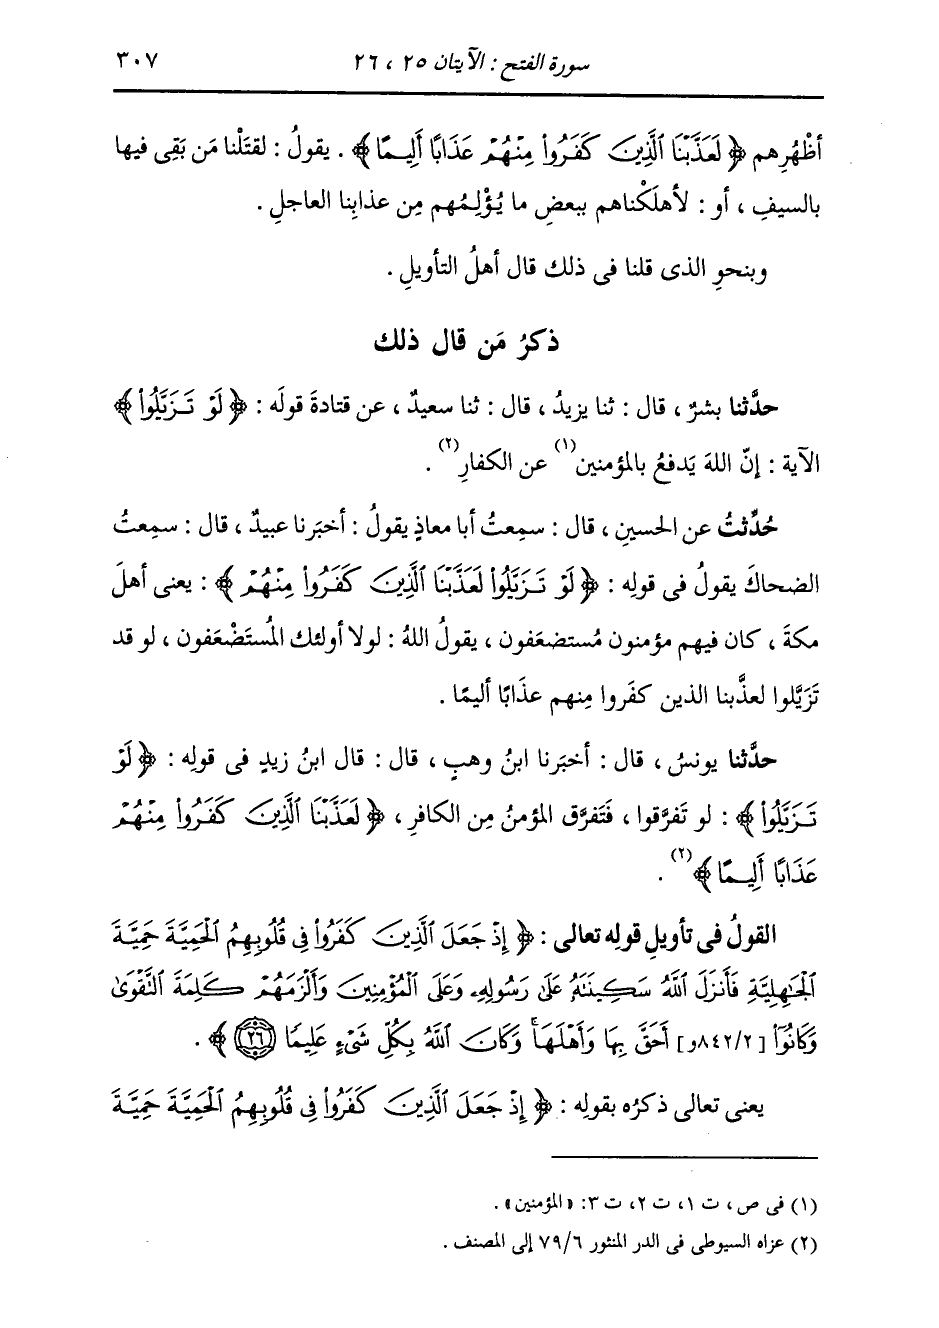 سورة الفتح : الآيتان ٢٥ ، ٢٦
٣٠٧
أظْهُرِهم ﴿ لَعَذَّبْنَا ٱلَّذِينَ كَفَرُوا۟ مِنْهُمْ عَذَابًا أَلِيمًا ﴾ . يقولُ : لقتَلْنا مَن بَقِى فيها
بالسيفِ ، أو : لأهلَكْناهم ببعضِ ما يُؤْلِمُهم مِن عذابِنا العاجلِ .
وبنحوِ الذى قلنا فى ذلك قال أهلُ التأويلِ .
ذكرُ مَن قال ذلك
حدَّثنا بشرٌ ، قال : ثنا يزيدُ ، قال : ثنا سعيدٌ ، عن قتادةَ قولَه : ﴿ لَوْ تَزَيَّلُوا۟ ﴾
الآية : إنّ اللهَ يَدفعُ بالمؤمنين(١) عن الكفارِ(٢) .
حُدِّثتُ عن الحسينِ ، قال : سمِعتُ أبا معاذٍ يقولُ : أخبَرنا عبيدٌ ، قال : سمِعتُ
الضحاكَ يقولُ فى قولِه : ﴿ لَوْ تَزَيَّلُوا۟ لَعَذَّبْنَا ٱلَّذِينَ كَفَرُوا۟ مِنْهُمْ ﴾ : يعنى أهلَ
مكةَ ، كان فيهم مؤمنون مُستضعَفون ، يقولُ اللهُ : لولا أولئك المُستَضْعَفون ، لو قد
تَزَيَّلوا لعذَّبنا الذين كفَروا مِنهم عذَابًا أليمًا .
حدَّثنا يونسُ ، قال : أخبَرنا ابنُ وهبٍ ، قال : قال ابنُ زيدٍ فى قولِه : ﴿ لَوْ
تَزَيَّلُوا۟ ﴾ : لو تَفرَّقوا ، فَتَفرَّق المؤمنُ مِن الكافرِ ، ﴿ لَعَذَّبْنَا ٱلَّذِينَ كَفَرُوا۟ مِنْهُمْ
عَذَابًا أَلِيمًا ﴾(٢) .
القولُ فى تأويلِ قولِه تعالى : ﴿ إِذْ جَعَلَ ٱلَّذِينَ كَفَرُوا۟ فِى قُلُوبِهِمُ ٱلْحَمِيَّةَ حَمِيَّةَ
ٱلْجَٰهِلِيَّةِ فَأَنزَلَ ٱللَّهُ سَكِينَتَهُۥ عَلَىٰ رَسُولِهِۦ وَعَلَى ٱلْمُؤْمِنِينَ وَأَلْزَمَهُمْ كَلِمَةَ ٱلتَّقْوَىٰ
وَكَانُوٓا۟ [٨٤٢/٢و] أَحَقَّ بِهَا وَأَهْلَهَا ۚ وَكَانَ ٱللَّهُ بِكُلِّ شَىْءٍ عَلِيمًا ٢٦ ﴾ .
يعنى تعالى ذكرُه بقولِه : ﴿ إِذْ جَعَلَ ٱلَّذِينَ كَفَرُوا۟ فِى قُلُوبِهِمُ ٱلْحَمِيَّةَ حَمِيَّةَ
(١) فى ص ، ت ١، ت ٢، ت ٣: «المؤمنين» .
(٢) عزاه السيوطى فى الدر المنثور ٧٩/٦ إلى المصنف .